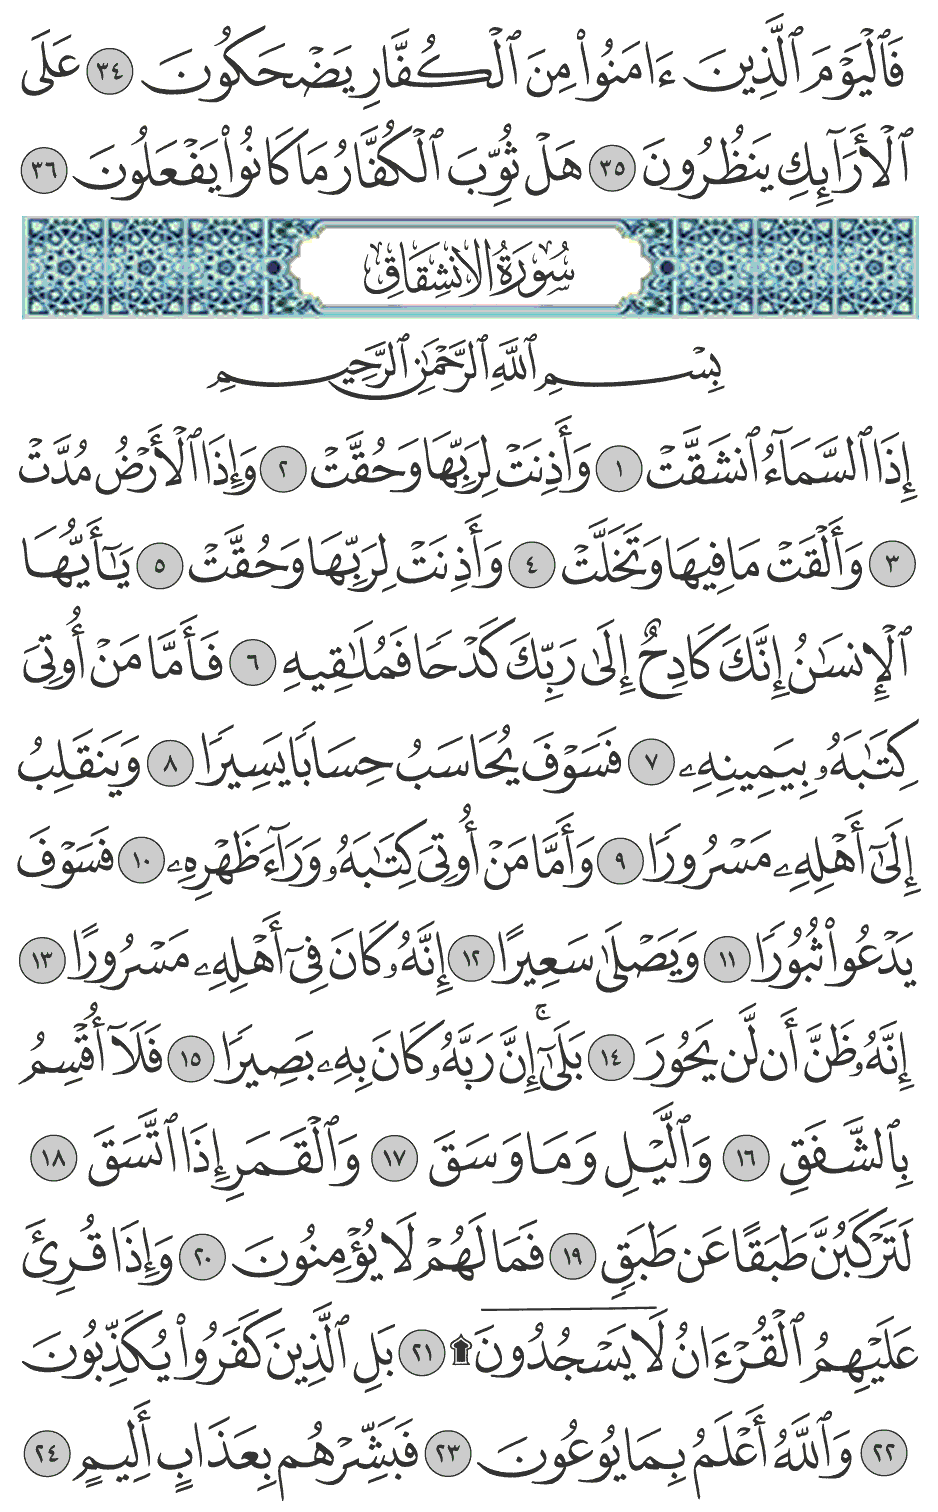 فَٱلۡيَوۡمَ ٱلَّذِينَ ءَامَنُواْ مِنَ ٱلۡكُفَّارِ يَضۡحَكُونَ ٣٤ عَلَى
ٱلۡأَرَآئِكِ يَنظُرُونَ ٣٥ هَلۡ ثُوِّبَ ٱلۡكُفَّارُ مَا كَانُواْ يَفۡعَلُونَ ٣٦
سُورَةُ الانشِقَاقِ
بِسۡمِ ٱللَّهِ ٱلرَّحۡمَٰنِ ٱلرَّحِيمِ
إِذَا ٱلسَّمَآءُ ٱنشَقَّتۡ ١ وَأَذِنَتۡ لِرَبِّهَا وَحُقَّتۡ ٢ وَإِذَا ٱلۡأَرۡضُ مُدَّتۡ
٣ وَأَلۡقَتۡ مَا فِيهَا وَتَخَلَّتۡ ٤ وَأَذِنَتۡ لِرَبِّهَا وَحُقَّتۡ ٥ يَٰٓأَيُّهَا
ٱلۡإِنسَٰنُ إِنَّكَ كَادِحٌ إِلَىٰ رَبِّكَ كَدۡحٗا فَمُلَٰقِيهِ ٦ فَأَمَّا مَنۡ أُوتِيَ
كِتَٰبَهُۥ بِيَمِينِهِۦ ٧ فَسَوۡفَ يُحَاسَبُ حِسَابٗا يَسِيرٗا ٨ وَيَنقَلِبُ
إِلَىٰٓ أَهۡلِهِۦ مَسۡرُورٗا ٩ وَأَمَّا مَنۡ أُوتِيَ كِتَٰبَهُۥ وَرَآءَ ظَهۡرِهِۦ ١٠ فَسَوۡفَ
يَدۡعُواْ ثُبُورٗا ١١ وَيَصۡلَىٰ سَعِيرًا ١٢ إِنَّهُۥ كَانَ فِيٓ أَهۡلِهِۦ مَسۡرُورًا ١٣
إِنَّهُۥ ظَنَّ أَن لَّن يَحُورَ ١٤ بَلَىٰٓۚ إِنَّ رَبَّهُۥ كَانَ بِهِۦ بَصِيرٗا ١٥ فَلَآ أُقۡسِمُ
بِٱلشَّفَقِ ١٦ وَٱلَّيۡلِ وَمَا وَسَقَ ١٧ وَٱلۡقَمَرِ إِذَا ٱتَّسَقَ ١٨
لَتَرۡكَبُنَّ طَبَقًا عَن طَبَقٖ ١٩ فَمَا لَهُمۡ لَا يُؤۡمِنُونَ ٢٠ وَإِذَا قُرِئَ
عَلَيۡهِمُ ٱلۡقُرۡءَانُ لَا يَسۡجُدُونَ۩ ٢١ بَلِ ٱلَّذِينَ كَفَرُواْ يُكَذِّبُونَ
٢٢ وَٱللَّهُ أَعۡلَمُ بِمَا يُوعُونَ ٢٣ فَبَشِّرۡهُم بِعَذَابٍ أَلِيمٍ ٢٤